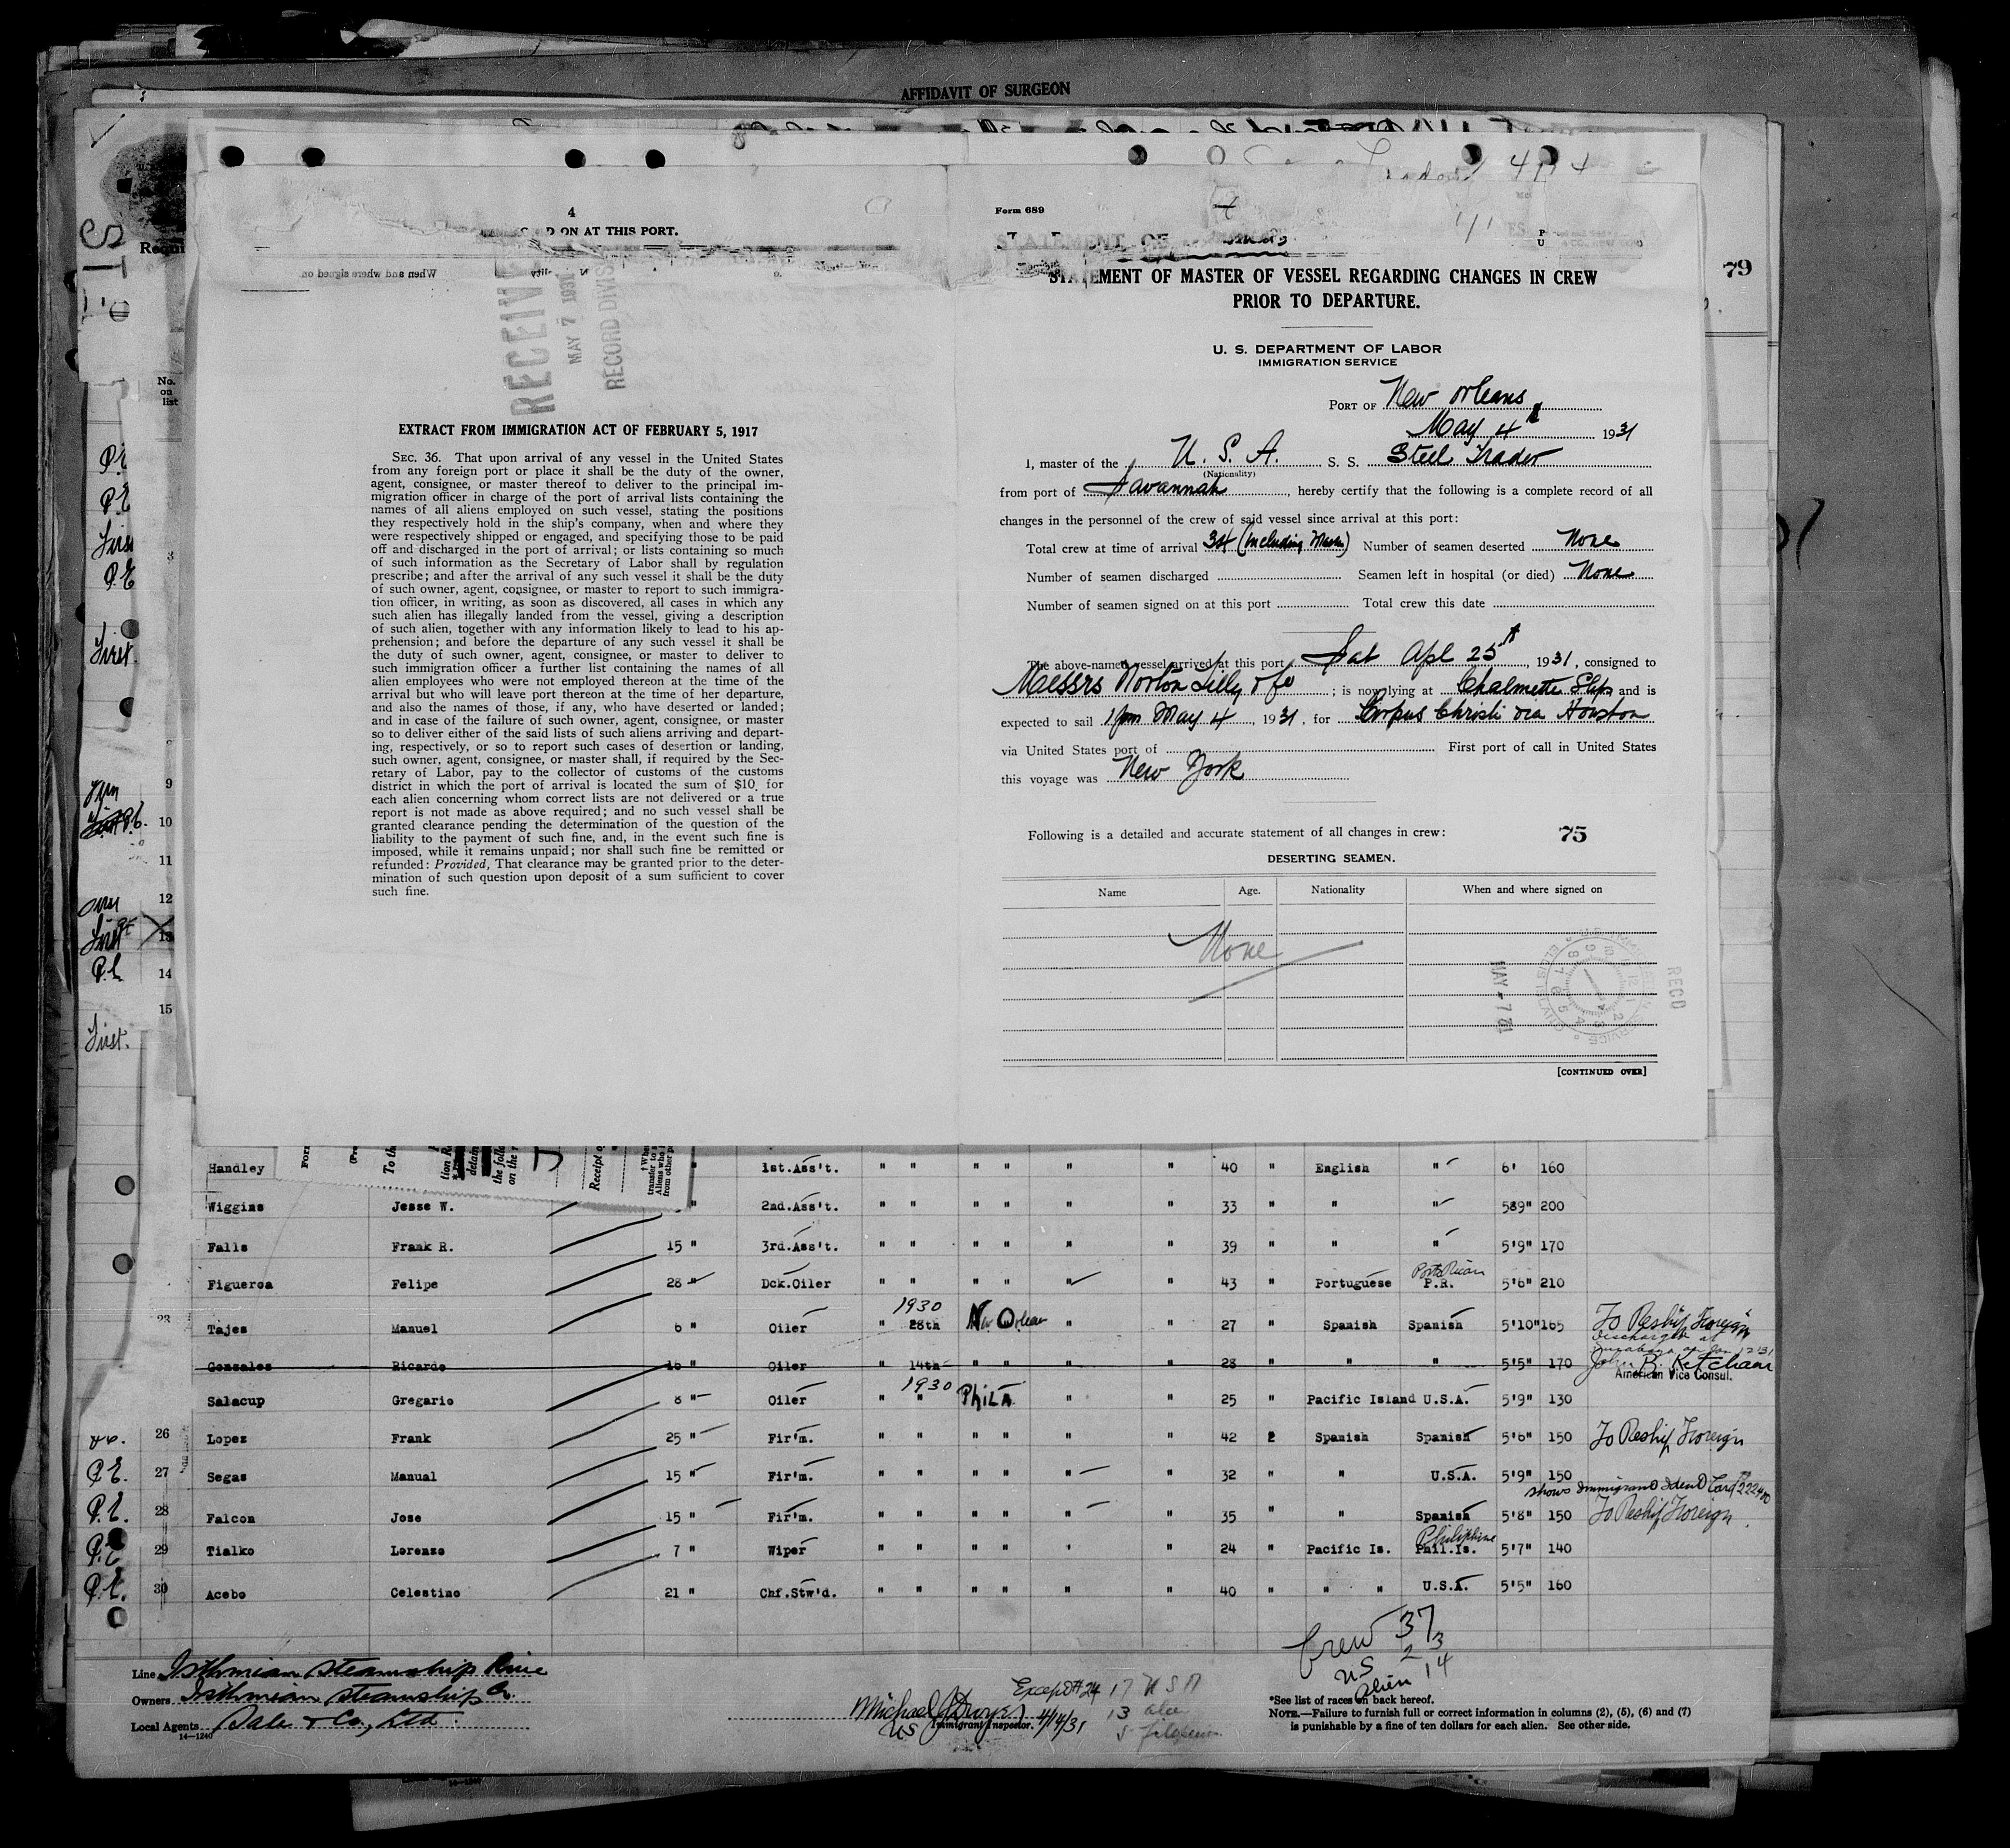 AFFIDAVIT OF SURGEON
79
4
D ON AT THIS PORT.
When and where signed on
RECEIVE
MAY 7 1931
RECORD DIVIS
EXTRACT FROM IMMIGRATION ACT OF FEBRUARY 5, 1917
SEC. 36. That upon arrival of any vessel in the United States
from any foreign port or place it shall be the duty of the owner,
agent, consignee, or master thereof to deliver to the principal im-
migration officer in charge of the port of arrival lists containing the
names of all aliens employed on such vessel, stating the positions
they respectively hold in the ship's company, when and where they
were respectively shipped or engaged, and specifying those to be paid
off and discharged in the port of arrival; or lists containing so much
of such information as the Secretary of Labor shall by regulation
prescribe; and after the arrival of any such vessel it shall be the duty
of such owner, agent, consignee, or master to report to such immigra-
tion officer, in writing, as soon as discovered, all cases in which any
such alien has illegally landed from the vessel, giving a description
of such alien, together with any information likely to lead to his ap-
prehension; and before the departure of any such vessel it shall be
the duty of such owner, agent, consignee, or master to deliver to
such immigration officer a further list containing the names of all
alien employees who were not employed thereon at the time of the
arrival but who will leave port thereon at the time of her departure,
and also the names of those, if any, who have deserted or landed;
and in case of the failure of such owner, agent, consignee, or master
so to deliver either of the said lists of such aliens arriving and depart-
ing, respectively, or so to report such cases of desertion or landing,
such owner, agent, consignee, or master shall, if required by the Sec-
retary of Labor, pay to the collector of customs of the customs
district in which the port of arrival is located the sum of $10, for
each alien concerning whom correct lists are not delivered or a true
report is not made as above required; and no such vessel shall be
granted clearance pending the determination of the question of the
liability to the payment of such fine, and, in the event such fine is
imposed, while it remains unpaid; nor shall such fine be remitted or
refunded: Provided, That clearance may be granted prior to the deter-
mination of such question upon deposit of a sum sufficient to cover
such fine.
Form 689
STATEMENT OF MASTER OF VESSEL REGARDING CHANGES IN CREW
PRIOR TO DEPARTURE.
U. S. DEPARTMENT OF LABOR
IMMIGRATION SERVICE
PORT OF New Orleans
May 4th 1931
I, master of the U. S. A. S. S. Steel Trader
(Nationality)
from port of Savannah, hereby certify that the following is a complete record of all
changes in the personnel of the crew of said vessel since arrival at this port:
Total crew at time of arrival 34 (Including Master) Number of seamen deserted None
Number of seamen discharged Seamen left in hospital (or died) None
Number of seamen signed on at this port Total crew this date
The above-named vessel arrived at this port Sat Apl 25th, 1931, consigned to
Messrs Norton Lilly & Co; is now lying at Chalmette Slip and is
expected to sail 1 pm May 4, 1931, for Corpus Christi via Houston
via United States port of First port of call in United States
this voyage was New York
Following is a detailed and accurate statement of all changes in crew: 75
DESERTING SEAMEN.
Name Age. Nationality When and where signed on
None
RECD MAY - 7
[CONTINUED OVER]
No. on list
3
9
10
11
12
13
14
15
Handley 1st.Ass't. " " " " " " 40 " English " 6' 160
Wiggins Jesse W. " 2nd.Ass't. " " " " " " 33 " " " 589" 200
Falls Frank R. 15 " 3rd.Ass't. " " " " " " 39 " " " 5'9" 170
Figueroa Felipe 28 " Dck.Oiler " " " " " " 43 " Portuguese Porto Rican P.R. 5'6" 210
23 Tajes Manuel 6 " Oiler 1930 " 28th New Orlean " " 27 " Spanish Spanish 5'10" 165 To Reship Foreign
Gonzales Ricardo 16 " Oiler " 14th " " 28 " " " 5'5" 170 Discharged at John B. Ketcham
American Vice Consul.
Salacup Gregario 8 " Oiler 1930 " " Phila " " 25 " Pacific Island U.S.A. 5'9" 130
26 Lopez Frank 25 " Fir'm. " " " " " " 42 2 Spanish Spanish 5'6" 150 To Reship Foreign
P.E. 27 Segas Manual 15 " Fir'm. " " " " " " 32 " " U.S.A. 5'9" 150
shows Immigrant Ident Card
P.E. 28 Falcon Jose 15 " Fir'm. " " " " " " 35 " " Spanish 5'8" 150 To Reship Foreign
P.E. 29 Tialko Lorenzo 7 " Wiper " " " " ' " 24 " Pacific Is. Philippine Phil.Is. 5'7" 140
P.E. 30 Acebo Celestino 21 " Chf.Stw'd. " " " " " " 40 " " " U.S.A. 5'5" 160
Crew 37
US 23
Alien 14
Line Isthmian Steamship Line
Owners Isthmian Steamship Co.
Local Agents Dale & Co., Ltd.
14—1240
Except #24
Michael J Dwyer
US Immigrant Inspector. 4/14/31
17 USA
13 alie
5 filipino
*See list of races on back hereof.
NOTE.—Failure to furnish full or correct information in columns (2), (5), (6) and (7)
is punishable by a fine of ten dollars for each alien. See other side.